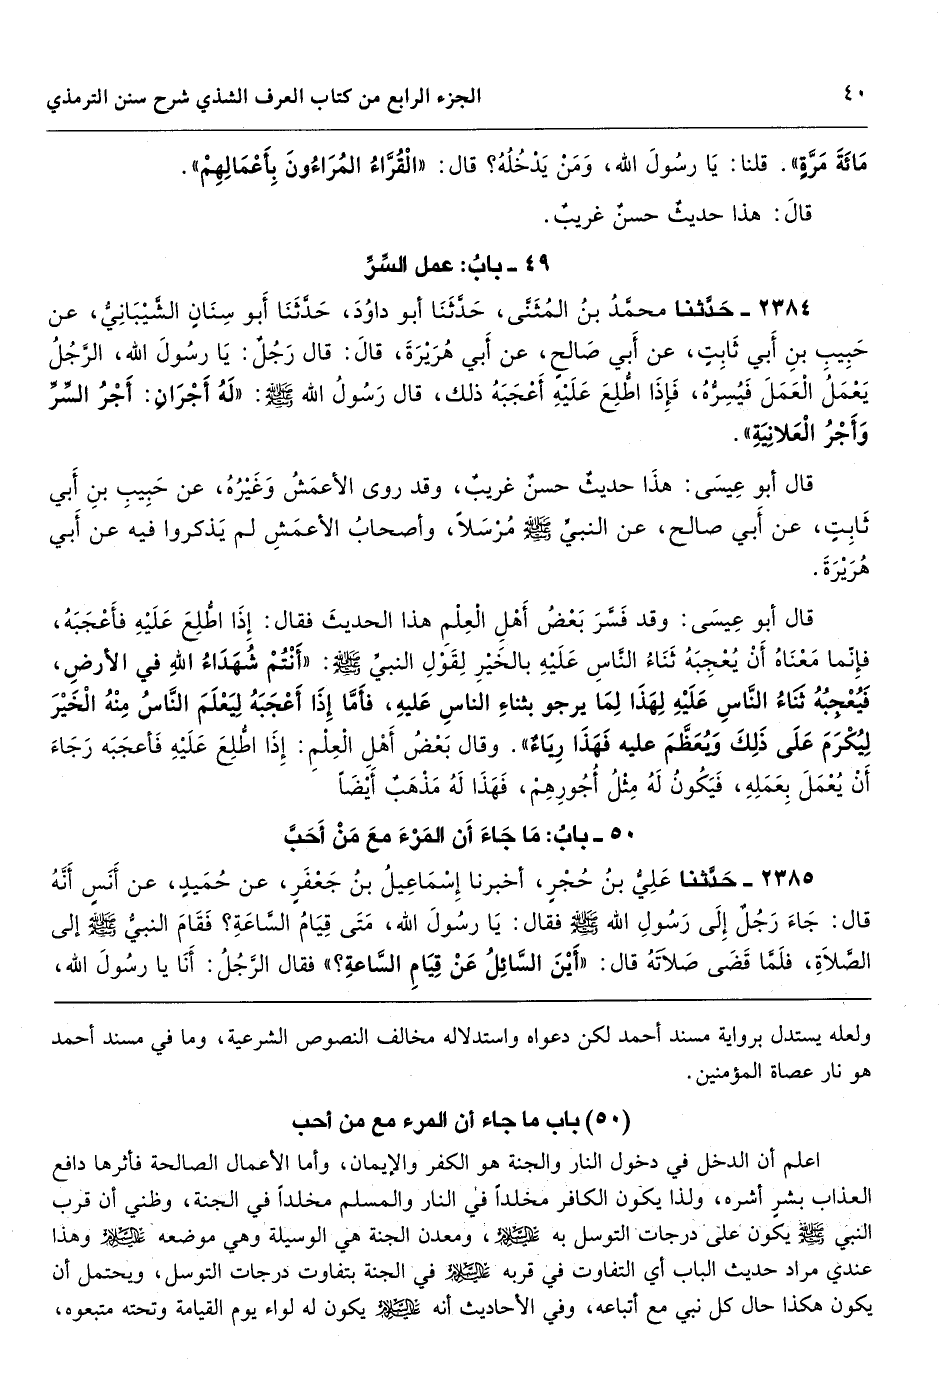 ٤٠ الجزء الرابع من كتاب العرف الشذي شرح سنن الترمذي
مَائَةَ مَرَّةٍ». قلنا: يَا رسُولَ الله، وَمَنْ يَدْخُلُهُ؟ قال: «الْقُرَّاءُ المُرَاءُونَ بِأَعْمَالِهِمْ».
قالَ: هذا حديثٌ حسنٌ غريبٌ.
٤٩ ـ بابُ: عمل السِّرِّ
٢٣٨٤ ـ حَدَّثنا محمَّدُ بنُ المُثَنَّى، حَدَّثَنَا أبو داوُدَ، حَدَّثَنَا أَبو سِنَانٍ الشَّيْبَانِيُّ، عن
حَبِيبِ بنِ أَبي ثَابِتٍ، عن أَبي صَالِحٍ، عن أبي هُرَيْرَةَ، قالَ: قال رَجُلٌ: يَا رسُولَ الله، الرَّجُلُ
يَعْمَلُ الْعَمَلَ فَيُسِرُّهُ، فَإِذَا اطُّلِعَ عَلَيْهِ أَعْجَبَهُ ذلك، قال رَسُولُ الله ﷺ: «لَهُ أَجْرَانِ: أَجْرُ السِّرِّ
وَأَجْرُ الْعَلانِيَةِ».
قال أبو عِيسَى: هذَا حديثٌ حسنٌ غريبٌ، وقد روى الأعمَشُ وَغَيْرُهُ، عن حَبِيبِ بنِ أَبي
ثَابِتٍ، عن أَبي صالح، عن النبيِّ ﷺ مُرْسَلاً، وأصحابُ الأعمَشِ لم يَذكروا فيه عن أَبي
هُرَيْرَةَ.
قال أبو عِيسَى: وقد فَسَّرَ بَعْضُ أَهْلِ الْعِلْمِ هذا الحديثَ فقال: إِذَا اطُّلِعَ عَلَيْهِ فأَعْجَبَهُ،
فإِنَّما مَعْنَاهُ أَنْ يُعْجِبَهُ ثَنَاءُ النَّاسِ عَلَيْهِ بالخَيْرِ لِقَوْلِ النبيِّ ﷺ: «أَنْتُمْ شُهَدَاءُ اللهِ في الأرضِ،
فَيُعْجِبُهُ ثَنَاءُ النَّاسِ عَلَيْهِ لِهَذَا لِمَا يرجو بثناءِ الناسِ عليهِ، فأمَّا إِذَا أعْجَبَهُ لِيَعْلَمَ النَّاسُ مِنْهُ الْخَيْرَ
لِيُكْرَمَ عَلَى ذَلِكَ وَيُعَظَّمَ عليه فَهَذَا رِيَاءٌ». وقال بَعْضُ أَهْلِ الْعِلْمِ: إِذَا اطُّلِعَ عَلَيْهِ فأعجَبَه رَجَاءَ
أَنْ يُعْمَلَ بِعَمَلِهِ، فَيَكُونُ لَهُ مِثْلُ أُجُورِهِمْ، فَهَذَا لَهُ مَذْهَبٌ أَيْضَاً
٥٠ ـ بابُ: مَا جَاءَ أَن المَرْءَ معَ مَنْ أَحَبَّ
٢٣٨٥ ـ حَدَّثنا عَلِيُّ بنُ حُجْرٍ، أخبرنا إِسْمَاعِيلُ بنُ جَعْفَرٍ، عن حُمَيدٍ، عن أَنَسٍ أَنَّهُ
قال: جَاءَ رَجُلٌ إِلَى رَسُولِ الله ﷺ فقال: يَا رسُولَ الله، مَتَى قِيَامُ السَّاعَةِ؟ فَقَامَ النبيُّ ﷺ إلى
الصَّلاَةِ، فلَمَّا قَضَى صَلاَتَهُ قال: «أَيْنَ السَّائِلُ عَنْ قِيَامِ السَّاعةِ؟» فقال الرَّجُلُ: أَنَا يا رسولَ الله،
ولعله يستدل برواية مسند أحمد لكن دعواه واستدلاله مخالف النصوص الشرعية، وما في مسند أحمد
هو نار عصاة المؤمنين.
(٥٠) باب ما جاء أن المرء مع من أحب
اعلم أن الدخل في دخول النار والجنة هو الكفر والإيمان، وأما الأعمال الصالحة فأثرها دافع
العذاب بشر أشره، ولذا يكون الكافر مخلداً في النار والمسلم مخلداً في الجنة، وظني أن قرب
النبي ﷺ يكون على درجات التوسل به عَلَيْهِ السَّلَامُ، ومعدن الجنة هي الوسيلة وهي موضعه عَلَيْهِ السَّلَامُ وهذا
عندي مراد حديث الباب أي التفاوت في قربه عَلَيْهِ السَّلَامُ في الجنة بتفاوت درجات التوسل، ويحتمل أن
يكون هكذا حال كل نبي مع أتباعه، وفي الأحاديث أنه عَلَيْهِ السَّلَامُ يكون له لواء يوم القيامة وتحته متبعوه،